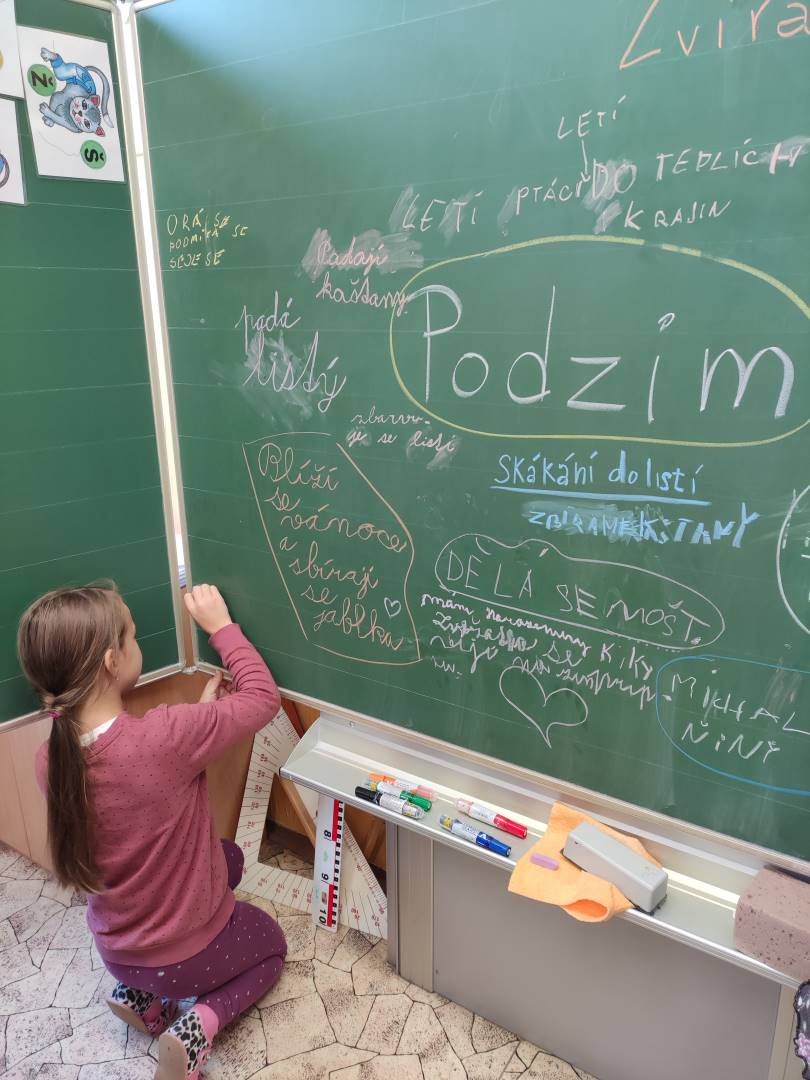 Ž
Š
Zvířa
LETÍ
LETÍ PTÁCI DO TEPLÍCH
KRAJIN
ORÁ SE
PODMÍTÁ SE
SEJE SE
Padají
kaštany
Podzim
padá
listý
zbarvu-
je se listí
Skákání do listí
ZBÍRÁME KAŠTANY
Blíží
se
vánoce
a
sbírají
se
jablka
DĚLÁ SE MOŠT.
mám narozeniny
se
MIKHAL
ŇINÝ
8
9
10